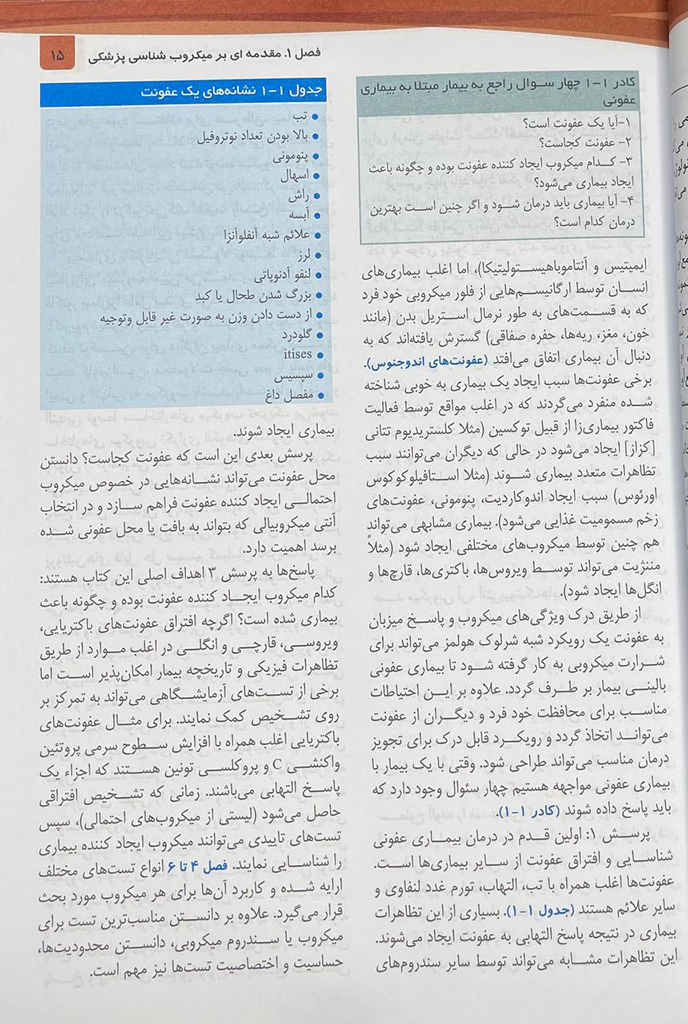 فصل ۱. مقدمه ای بر میکروب شناسی پزشکی
۱۵
کادر ۱-۱ چهار سوال راجع به بیمار مبتلا به بیماری
عفونی
۱-آیا یک عفونت است؟
۲- عفونت کجاست؟
۳- کدام میکروب ایجاد کننده عفونت بوده و چگونه باعث
ایجاد بیماری می‌شود؟
۴- آیا بیماری باید درمان شود و اگر چنین است بهترین
درمان کدام است؟
ایمیتیس و آنتاموباهیستولیتیکا)، اما اغلب بیماری‌های
انسان توسط ارگانیسم‌هایی از فلور میکروبی خود فرد
که به قسمت‌های به طور نرمال استریل بدن (مانند
خون، مغز، ریه‌ها، حفره صفاقی) گسترش یافته‌اند که به
دنبال آن بیماری اتفاق می‌افتد (عفونت‌های اندوجنوس).
برخی عفونت‌ها سبب ایجاد یک بیماری به خوبی شناخته
شده منفرد می‌گردند که در اغلب مواقع توسط فعالیت
فاکتور بیماری‌زا از قبیل توکسین (مثلا کلستریدیوم تتانی
[کزاز] ایجاد می‌شود در حالی که دیگران می‌توانند سبب
تظاهرات متعدد بیماری شوند (مثلا استافیلوکوکوس
اورئوس) سبب ایجاد اندوکاردیت، پنومونی، عفونت‌های
زخم مسمومیت غذایی می‌شود). بیماری مشابهی می‌تواند
هم چنین توسط میکروب‌های مختلفی ایجاد شود (مثلاً
مننژیت می‌تواند توسط ویروس‌ها، باکتری‌ها، قارچ‌ها و
انگل‌ها ایجاد شود).
از طریق درک ویژگی‌های میکروب و پاسخ میزبان
به عفونت یک رویکرد شبه شرلوک هولمز می‌تواند برای
شرارت میکروبی به کار گرفته شود تا بیماری عفونی
بالینی بیمار بر طرف گردد. علاوه بر این احتیاطات
مناسب برای محافظت خود فرد و دیگران از عفونت
می‌تواند اتخاذ گردد و رویکرد قابل درک برای تجویز
درمان مناسب می‌تواند طراحی شود. وقتی با یک بیمار با
بیماری عفونی مواجهه هستیم چهار سئوال وجود دارد که
باید پاسخ داده شوند (کادر ۱-۱).
پرسش ۱: اولین قدم در درمان بیماری عفونی
شناسایی و افتراق عفونت از سایر بیماری‌ها است.
عفونت‌ها اغلب همراه با تب، التهاب، تورم غدد لنفاوی و
سایر علائم هستند (جدول ۱-۱). بسیاری از این تظاهرات
بیماری در نتیجه پاسخ التهابی به عفونت ایجاد می‌شوند.
این تظاهرات مشابه می‌تواند توسط سایر سندروم‌های
جدول ۱-۱ نشانه‌های یک عفونت
• تب
• بالا بودن تعداد نوتروفیل
• پنومونی
• اسهال
• راش
• آبسه
• علائم شبه آنفلوآنزا
• لرز
• لنفو آدنوپاتی
• بزرگ شدن طحال یا کبد
• از دست دادن وزن به صورت غیر قابل وتوجیه
• گلودرد
• itises
• سپسیس
• مفصل داغ
بیماری ایجاد شوند.
پرسش بعدی این است که عفونت کجاست؟ دانستن
محل عفونت می‌تواند نشانه‌هایی در خصوص میکروب
احتمالی ایجاد کننده عفونت فراهم سازد و در انتخاب
آنتی میکروبیالی که بتواند به بافت یا محل عفونی شده
برسد اهمیت دارد.
پاسخ‌ها به پرسش ۳ اهداف اصلی این کتاب هستند:
کدام میکروب ایجاد کننده عفونت بوده و چگونه باعث
بیماری شده است؟ اگرچه افتراق عفونت‌های باکتریایی،
ویروسی، قارچی و انگلی در اغلب موارد از طریق
تظاهرات فیزیکی و تاریخچه بیمار امکان‌پذیر است اما
برخی از تست‌های آزمایشگاهی می‌تواند به تمرکز بر
روی تشخیص کمک نمایند. برای مثال عفونت‌های
باکتریایی اغلب همراه با افزایش سطوح سرمی پروتئین
واکنشی C و پروکلسی تونین هستند که اجزاء یک
پاسخ التهابی می‌باشند. زمانی که تشخیص افتراقی
حاصل می‌شود (لیستی از میکروب‌های احتمالی)، سپس
تست‌های تاییدی می‌توانند میکروب ایجاد کننده بیماری
را شناسایی نمایند. فصل ۴ تا ۶ انواع تست‌های مختلف
ارایه شده و کاربرد آن‌ها برای هر میکروب مورد بحث
قرار می‌گیرد. علاوه بر دانستن مناسب‌ترین تست برای
میکروب یا سندروم میکروبی، دانستن محدودیت‌ها،
حساسیت و اختصاصیت تست‌ها نیز مهم است.